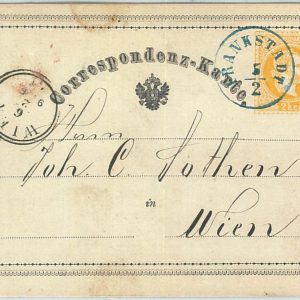 Correspondenz-Karte.
FRANKSTADT
5/2
WIEN
Herrn
Joh. C. Sothen
in
Wien